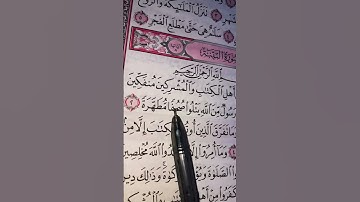 تَنَزَّلُ الْمَلَٰٓئِكَةُ وَالرُّوحُ
سَلَٰمٌ هِىَ حَتَّىٰ مَطْلَعِ الْفَجْرِ
سُورَةُ الْبَيِّنَةِ
بِسْمِ اللَّهِ الرَّحْمَٰنِ الرَّحِيمِ
أَهْلِ الْكِتَٰبِ وَالْمُشْرِكِينَ مُنفَكِّينَ
رَسُولٌ مِّنَ اللَّهِ يَتْلُوا صُحُفًا مُّطَهَّرَةً ٢
وَمَا تَفَرَّقَ الَّذِينَ أُوتُوا الْكِتَٰبَ إِلَّا مِنۢ
وَمَآ أُمِرُوٓا اللَّهَ مُخْلِصِينَ
الصَّلَوٰةَ وَذَٰلِكَ دِينُ
كَفَرُوا مِنْ أَهْلِ